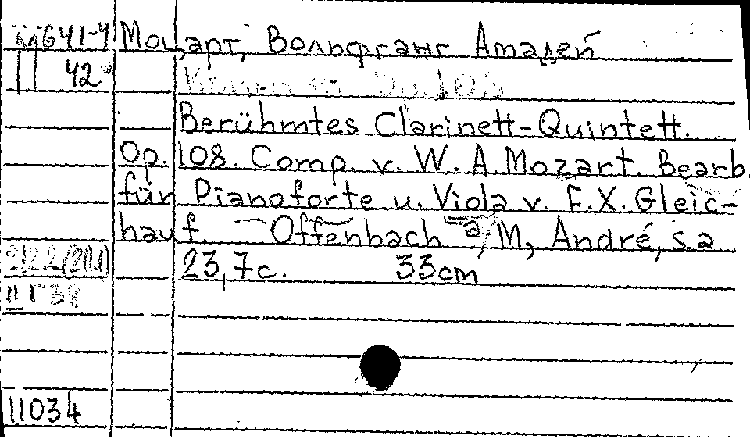 М641-4 Моцарт, Вольфганг Амадей
42
Berühmtes Clarinett-Quintett.
Op. 108. Comp. v. W. A. Mozart. Bearb.
für Pianoforte u. Viola v. F. X. Gleic-
hauf. - Offenbach a/M, André, s.a
23,7с. 33cm
11034